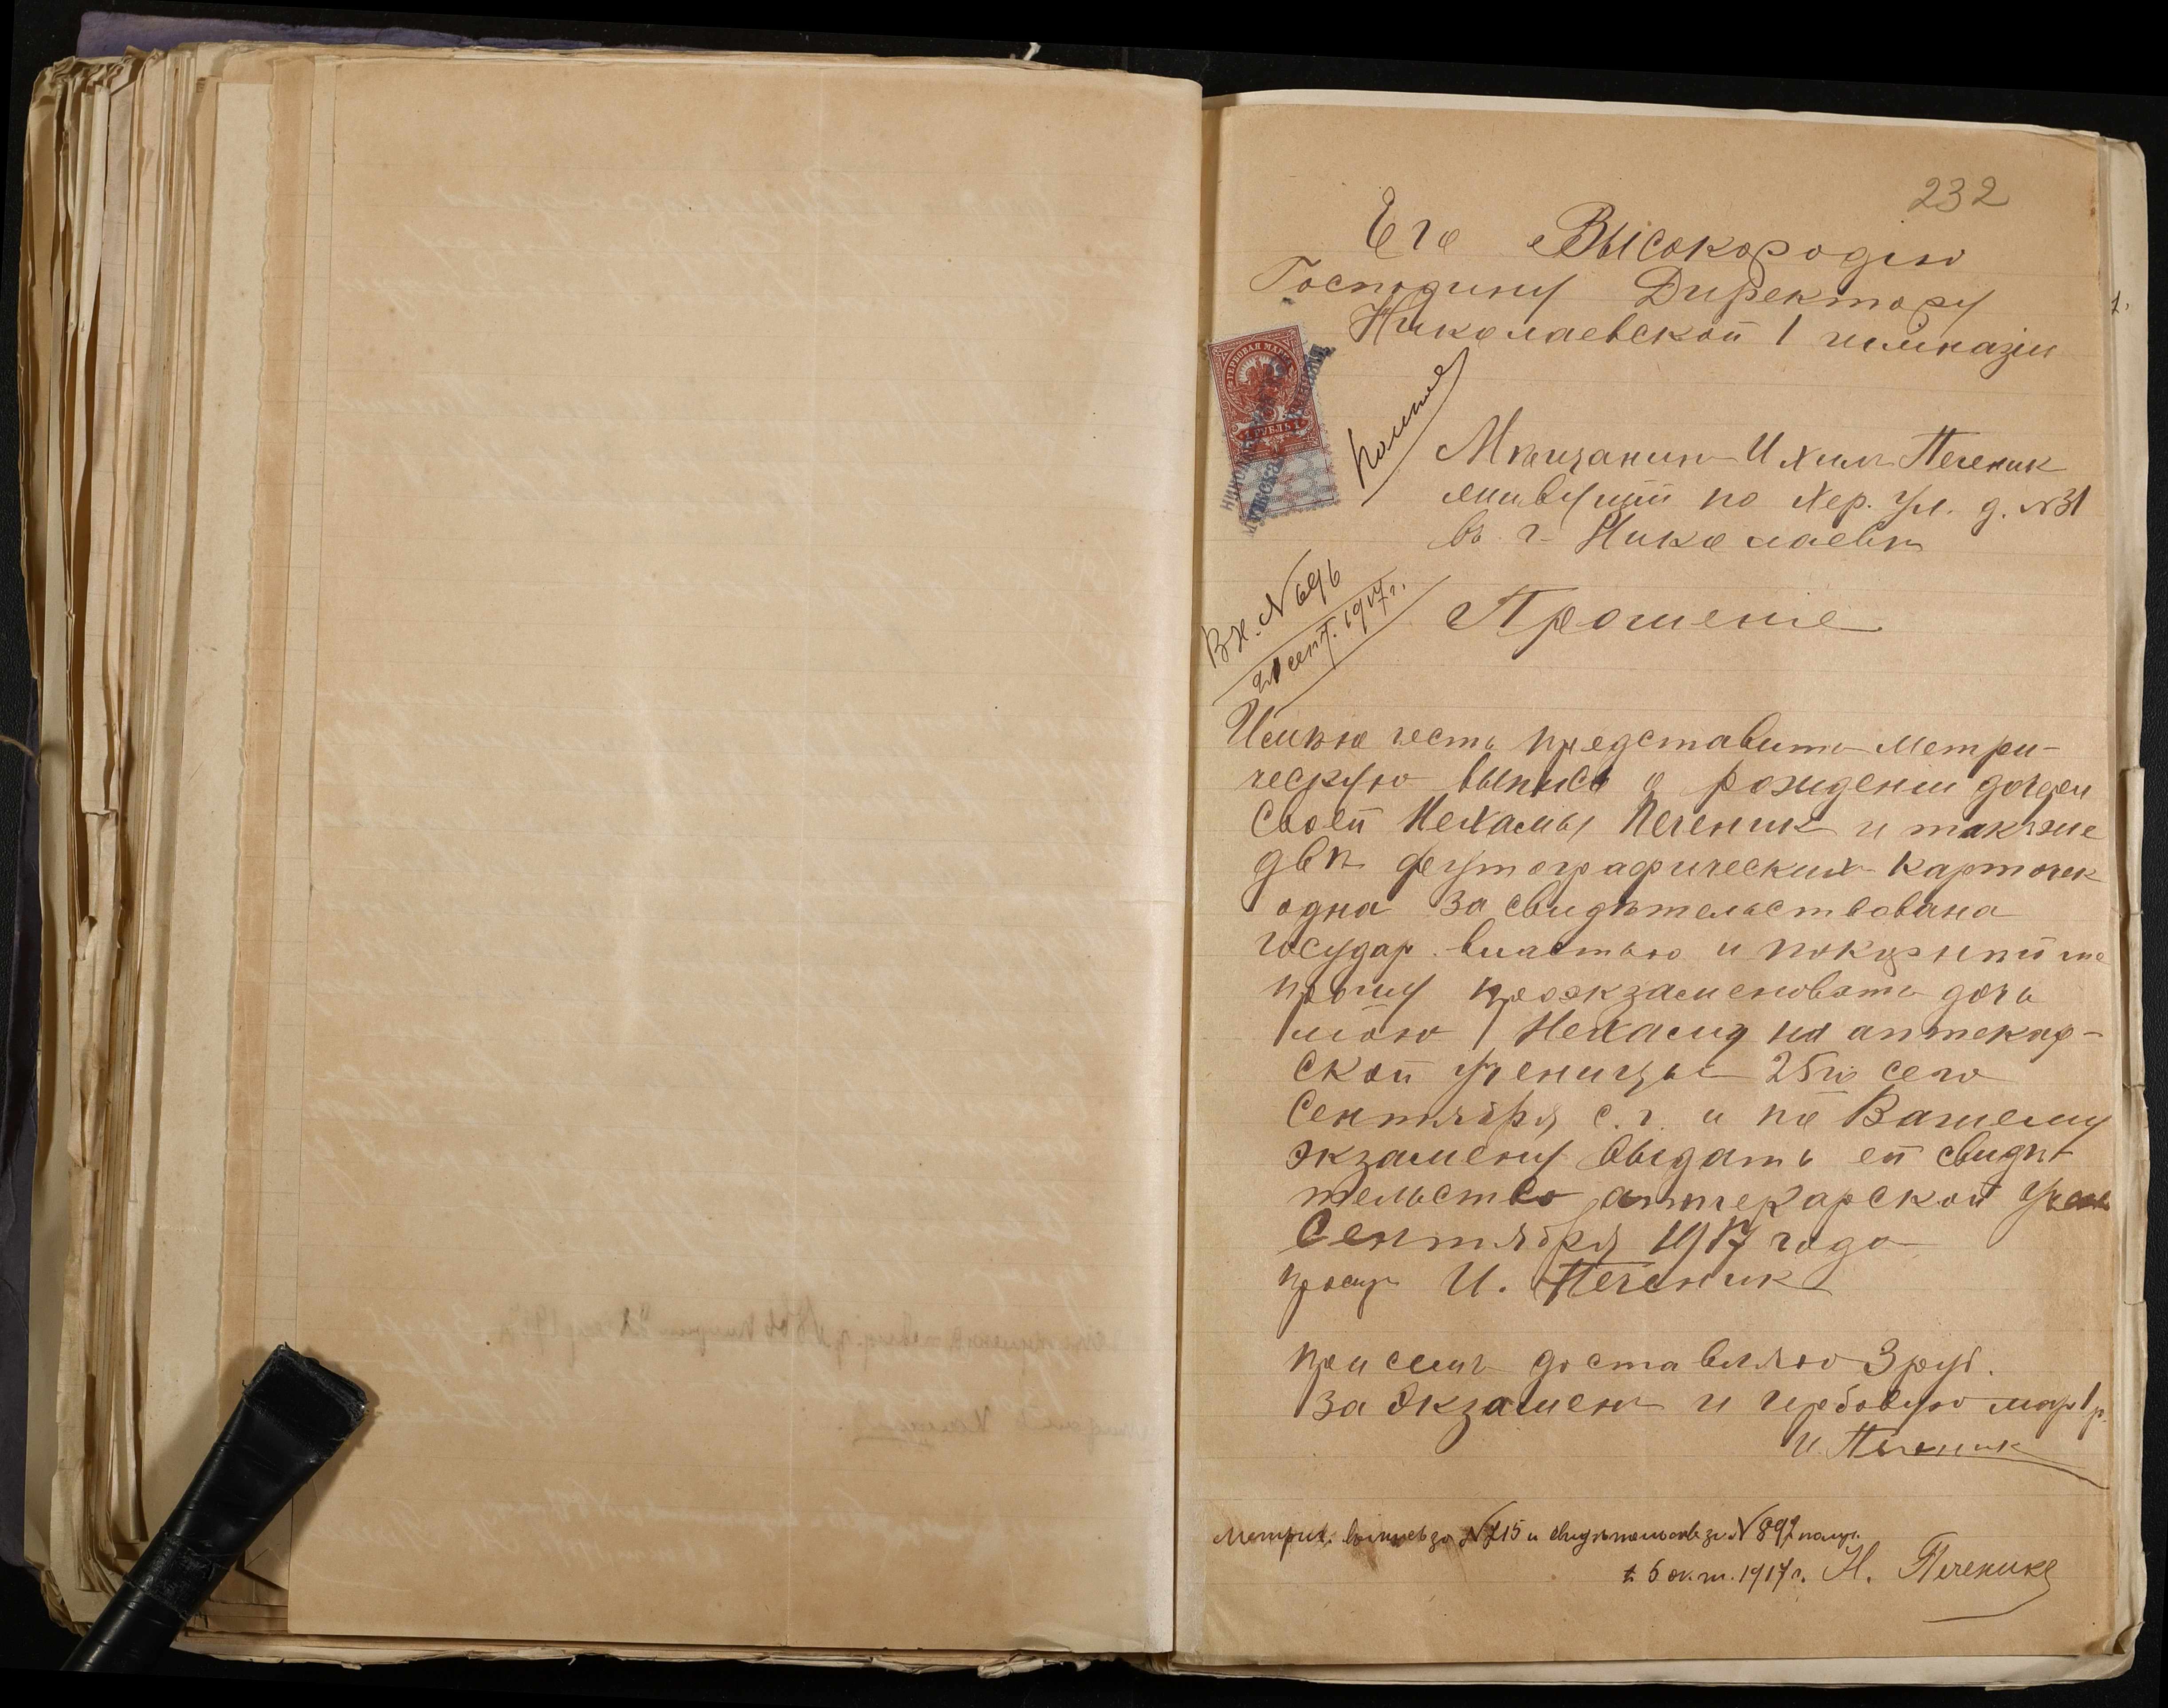 232
Его Высокородiю
Господину Директору
Николаевской 1 гимназiи
ГЕРБОВАЯ МАРКА
1 РУБЛЬ 1
Мѣщанин Ихил Печеник
живущiй по Хер. ул. д. №31
въ г. Николаевѣ
Вх. №696
21 сент. 1917г.
Прошенiе
Имѣю честь представить метри-
ческую выпись о рожденiи дочери
своей Нехамы Печеник и также
двѣ фотографических карточек
одна засвидѣтельствована
государ. властью и покорнѣйше
прошу проэкзаменовать дочь
мою Нехаму на аптекар-
ской ученицы 25го сего
Сентября с.г. и по Вашему
экзамену выдать ей свидѣ-
тельство аптекарской учен
Сентября 1917 года
просит И. Печеник
при семъ доставляю 3 руб.
за Экзамен и гербовую мар 1 р.
И. Печеник
Метрич. выпись за №215 и свидѣтельство за №892 получ.
5 окт. 1917г. Н. Печеник